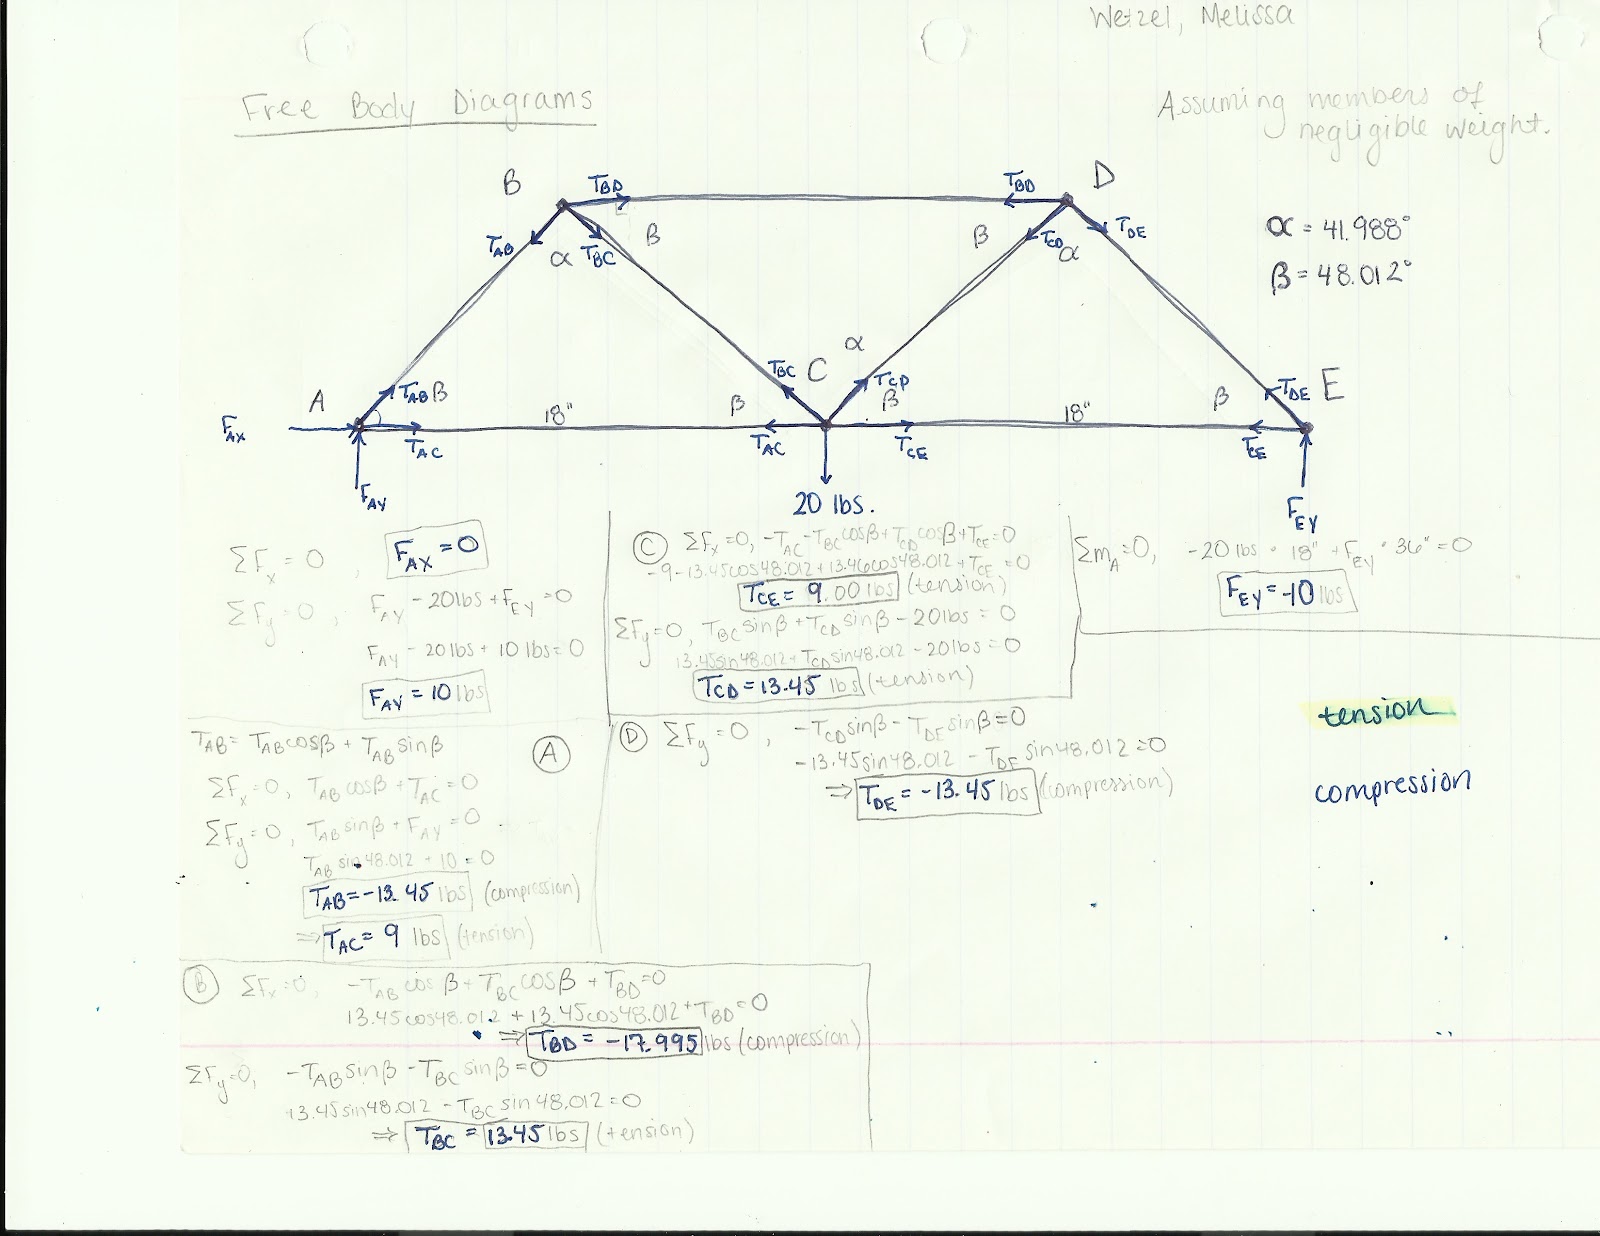 Wetzel, Melissa
Free Body Diagrams
Assuming members of
negligible weight.
B
T_BD
T_BD
D
T_AB
α
T_BC
β
β
T_CD
α
T_DE
α = 41.988°
β = 48.012°
A
T_AB
β
T_BC
C
α
T_CD
β
β
β
T_DE
E
F_AX
18"
18"
T_AC
T_AC
T_CE
T_CE
F_AY
20 lbs.
F_EY
ΣF_x = 0, F_AX = 0
ΣF_y = 0, F_AY - 20lbs + F_EY = 0
F_AY - 20lbs + 10 lbs = 0
F_AY = 10 lbs
C ΣF_x = 0, -T_AC - T_BC cosβ + T_CD cosβ + T_CE = 0
-9 - 13.45cos48.012 + 13.46cos48.012 + T_CE = 0
T_CE = 9.00 lbs (tension)
ΣF_y = 0, T_BC sinβ + T_CD sinβ - 20lbs = 0
13.45sin48.012 + T_CD sin48.012 - 20lbs = 0
T_CD = 13.45 lbs (tension)
Σm_A = 0, -20 lbs · 18" + F_EY · 36" = 0
F_EY = -10 lbs
tension
compression
T_AB = T_AB cosβ + T_AB sinβ
A
ΣF_x = 0, T_AB cosβ + T_AC = 0
ΣF_y = 0, T_AB sinβ + F_AY = 0
T_AB sin 48.012 + 10 = 0
T_AB = -13.45 lbs (compression)
⇒ T_AC = 9 lbs (tension)
D ΣF_y = 0, -T_CD sinβ - T_DE sinβ = 0
-13.45sin48.012 - T_DE sin48.012 = 0
⇒ T_DE = -13.45 lbs (compression)
B ΣF_x = 0, -T_AB cosβ + T_BC cosβ + T_BD = 0
13.45cos48.012 + 13.45cos48.012 + T_BD = 0
⇒ T_BD = -17.995 lbs (compression)
ΣF_y = 0, -T_AB sinβ - T_BC sinβ = 0
+13.45sin48.012 - T_BC sin48.012 = 0
⇒ T_BC = 13.45 lbs (tension)